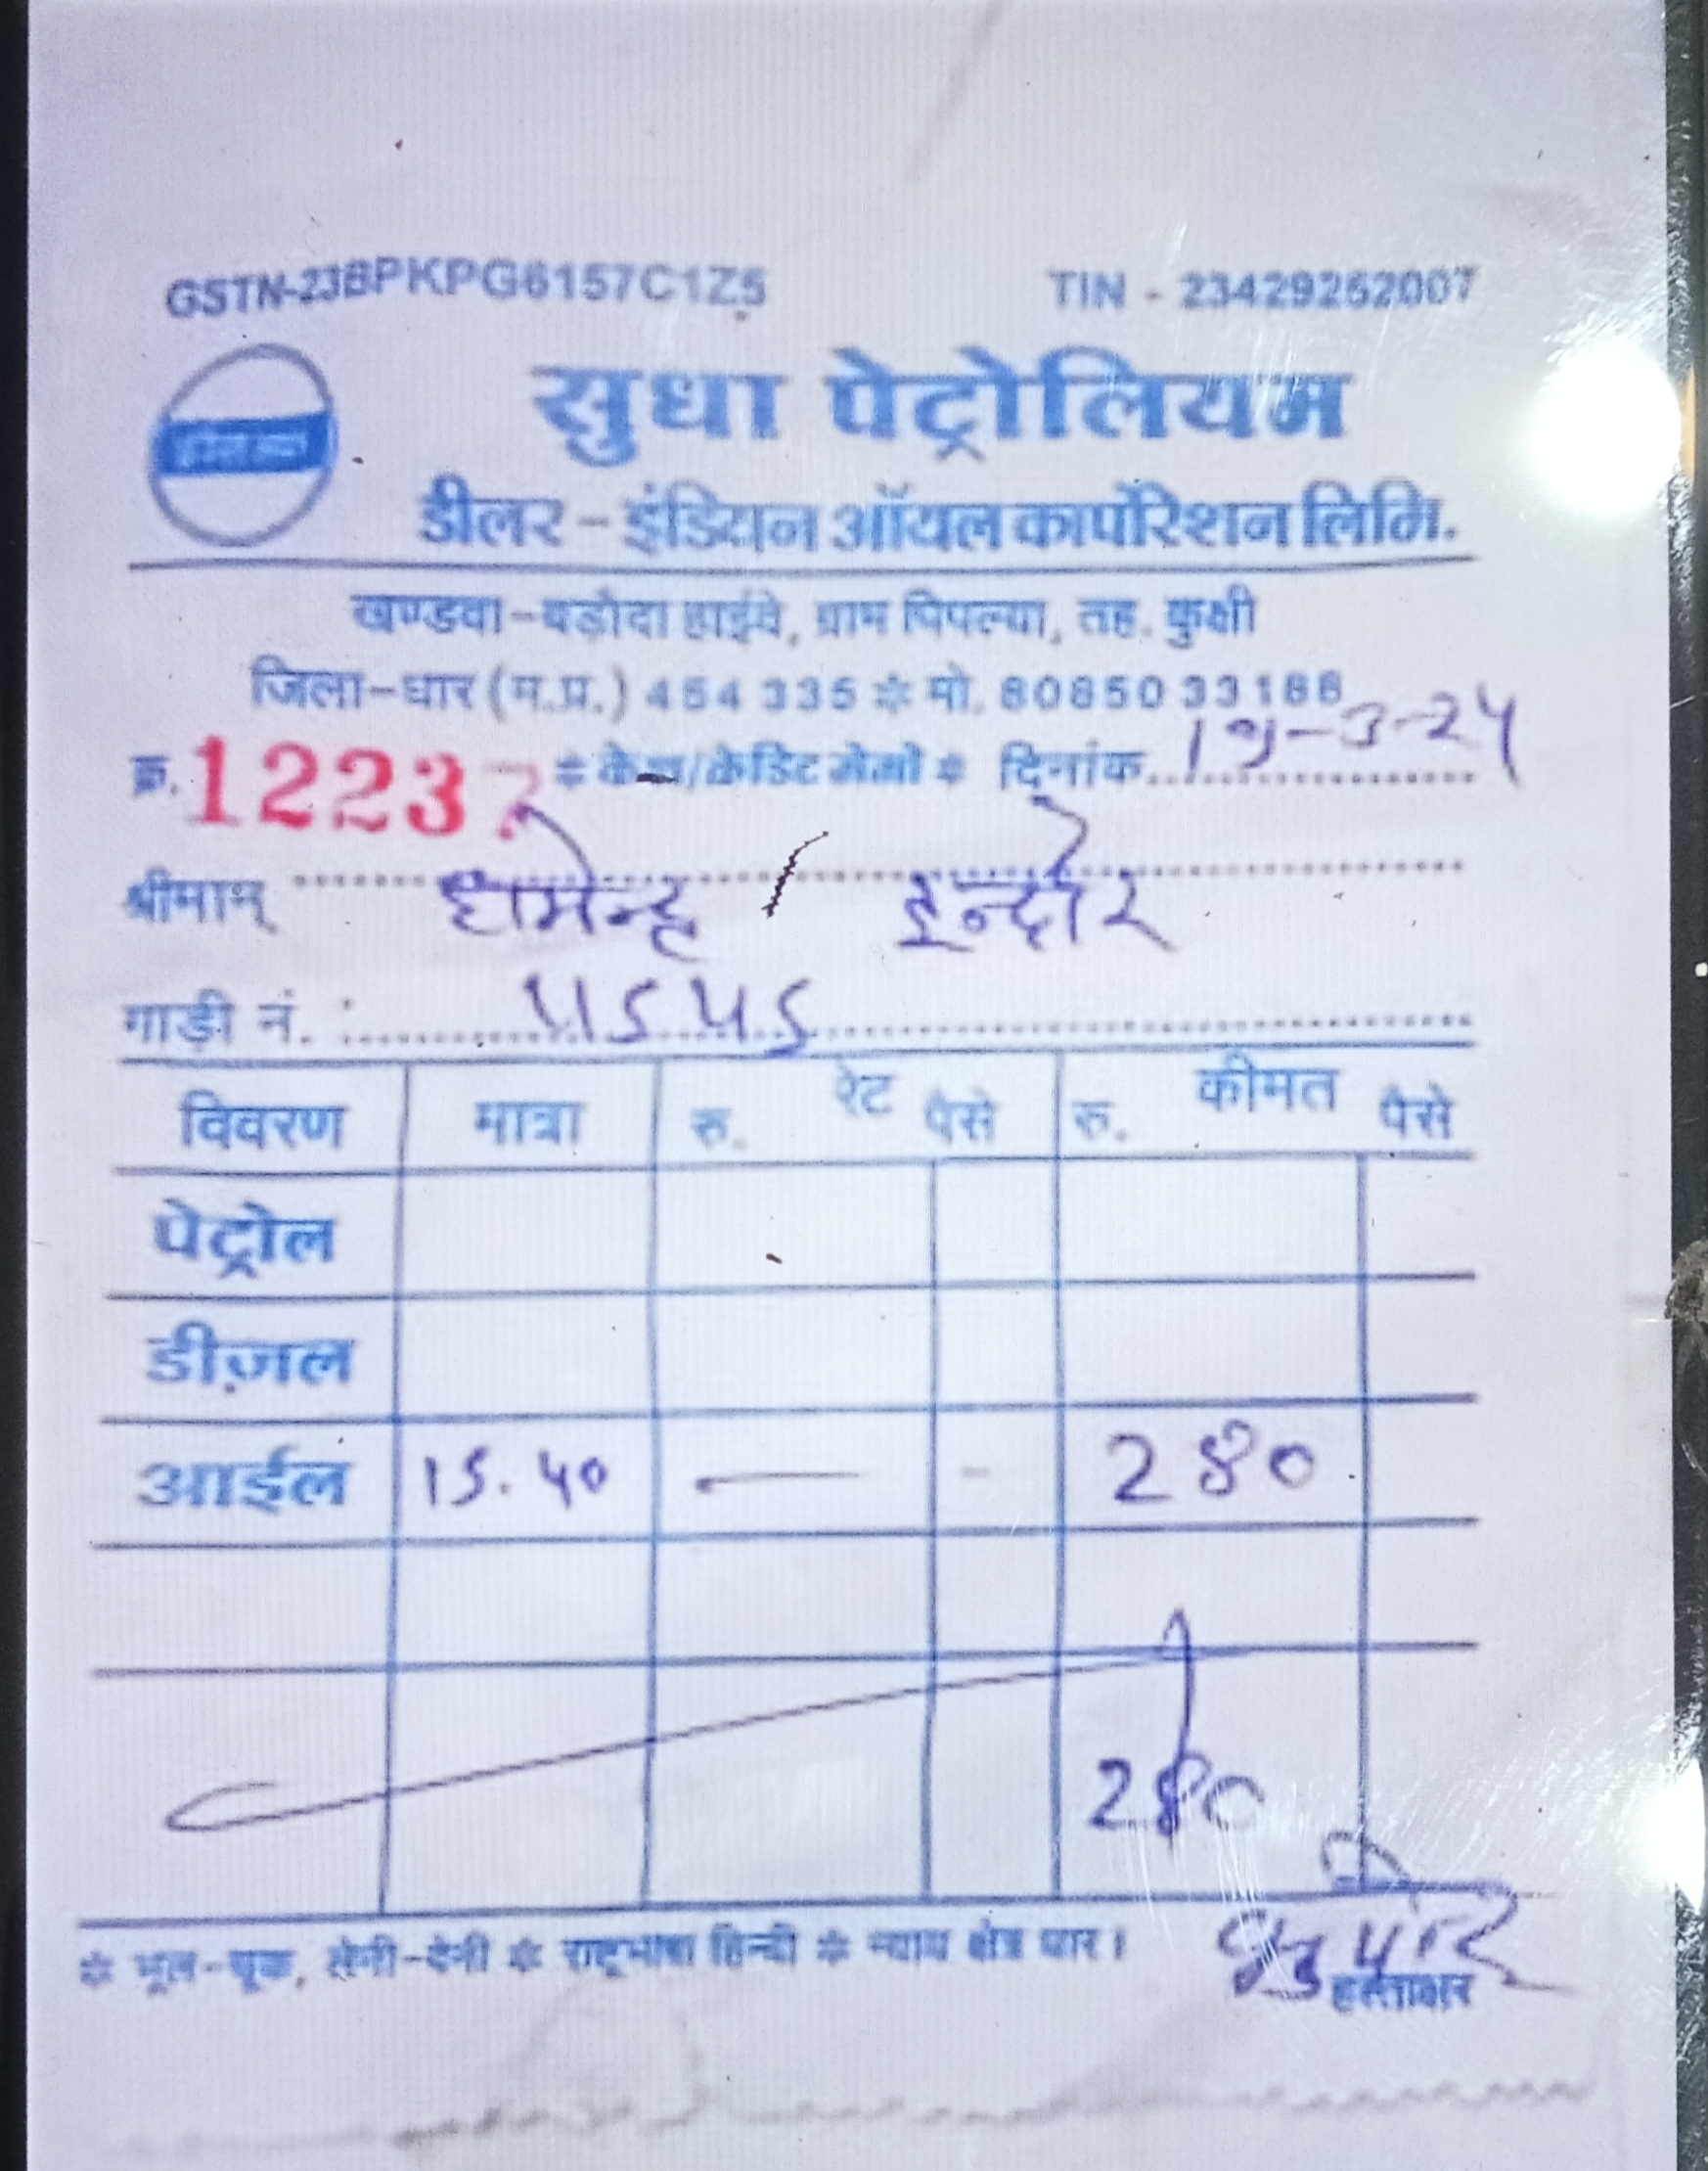 GSTN-23BPKPG6157C1Z5 TIN - 23429262007
सुधा पेट्रोलियम
डीलर - इंडियन ऑयल कार्पोरेशन लिमि.
खण्डवा-बड़ोदा हाईवे, ग्राम पिपल्या, तह. कुक्षी
जिला-धार (म.प्र.) 454 335 * मो.
क्र. * केश/क्रेडिट मेमो * दिनांक
श्रीमान् धर्मेन्द्र / इन्दौर
गाड़ी नं.
विवरण मात्रा रु. रेट पैसे रु. कीमत पैसे
पेट्रोल
डीज़ल
आईल 15.40 — - 280
280
* भूल-चूक, लेनी-देनी * राष्ट्रभाषा हिन्दी * न्याय क्षेत्र धार।
हस्ताक्षर